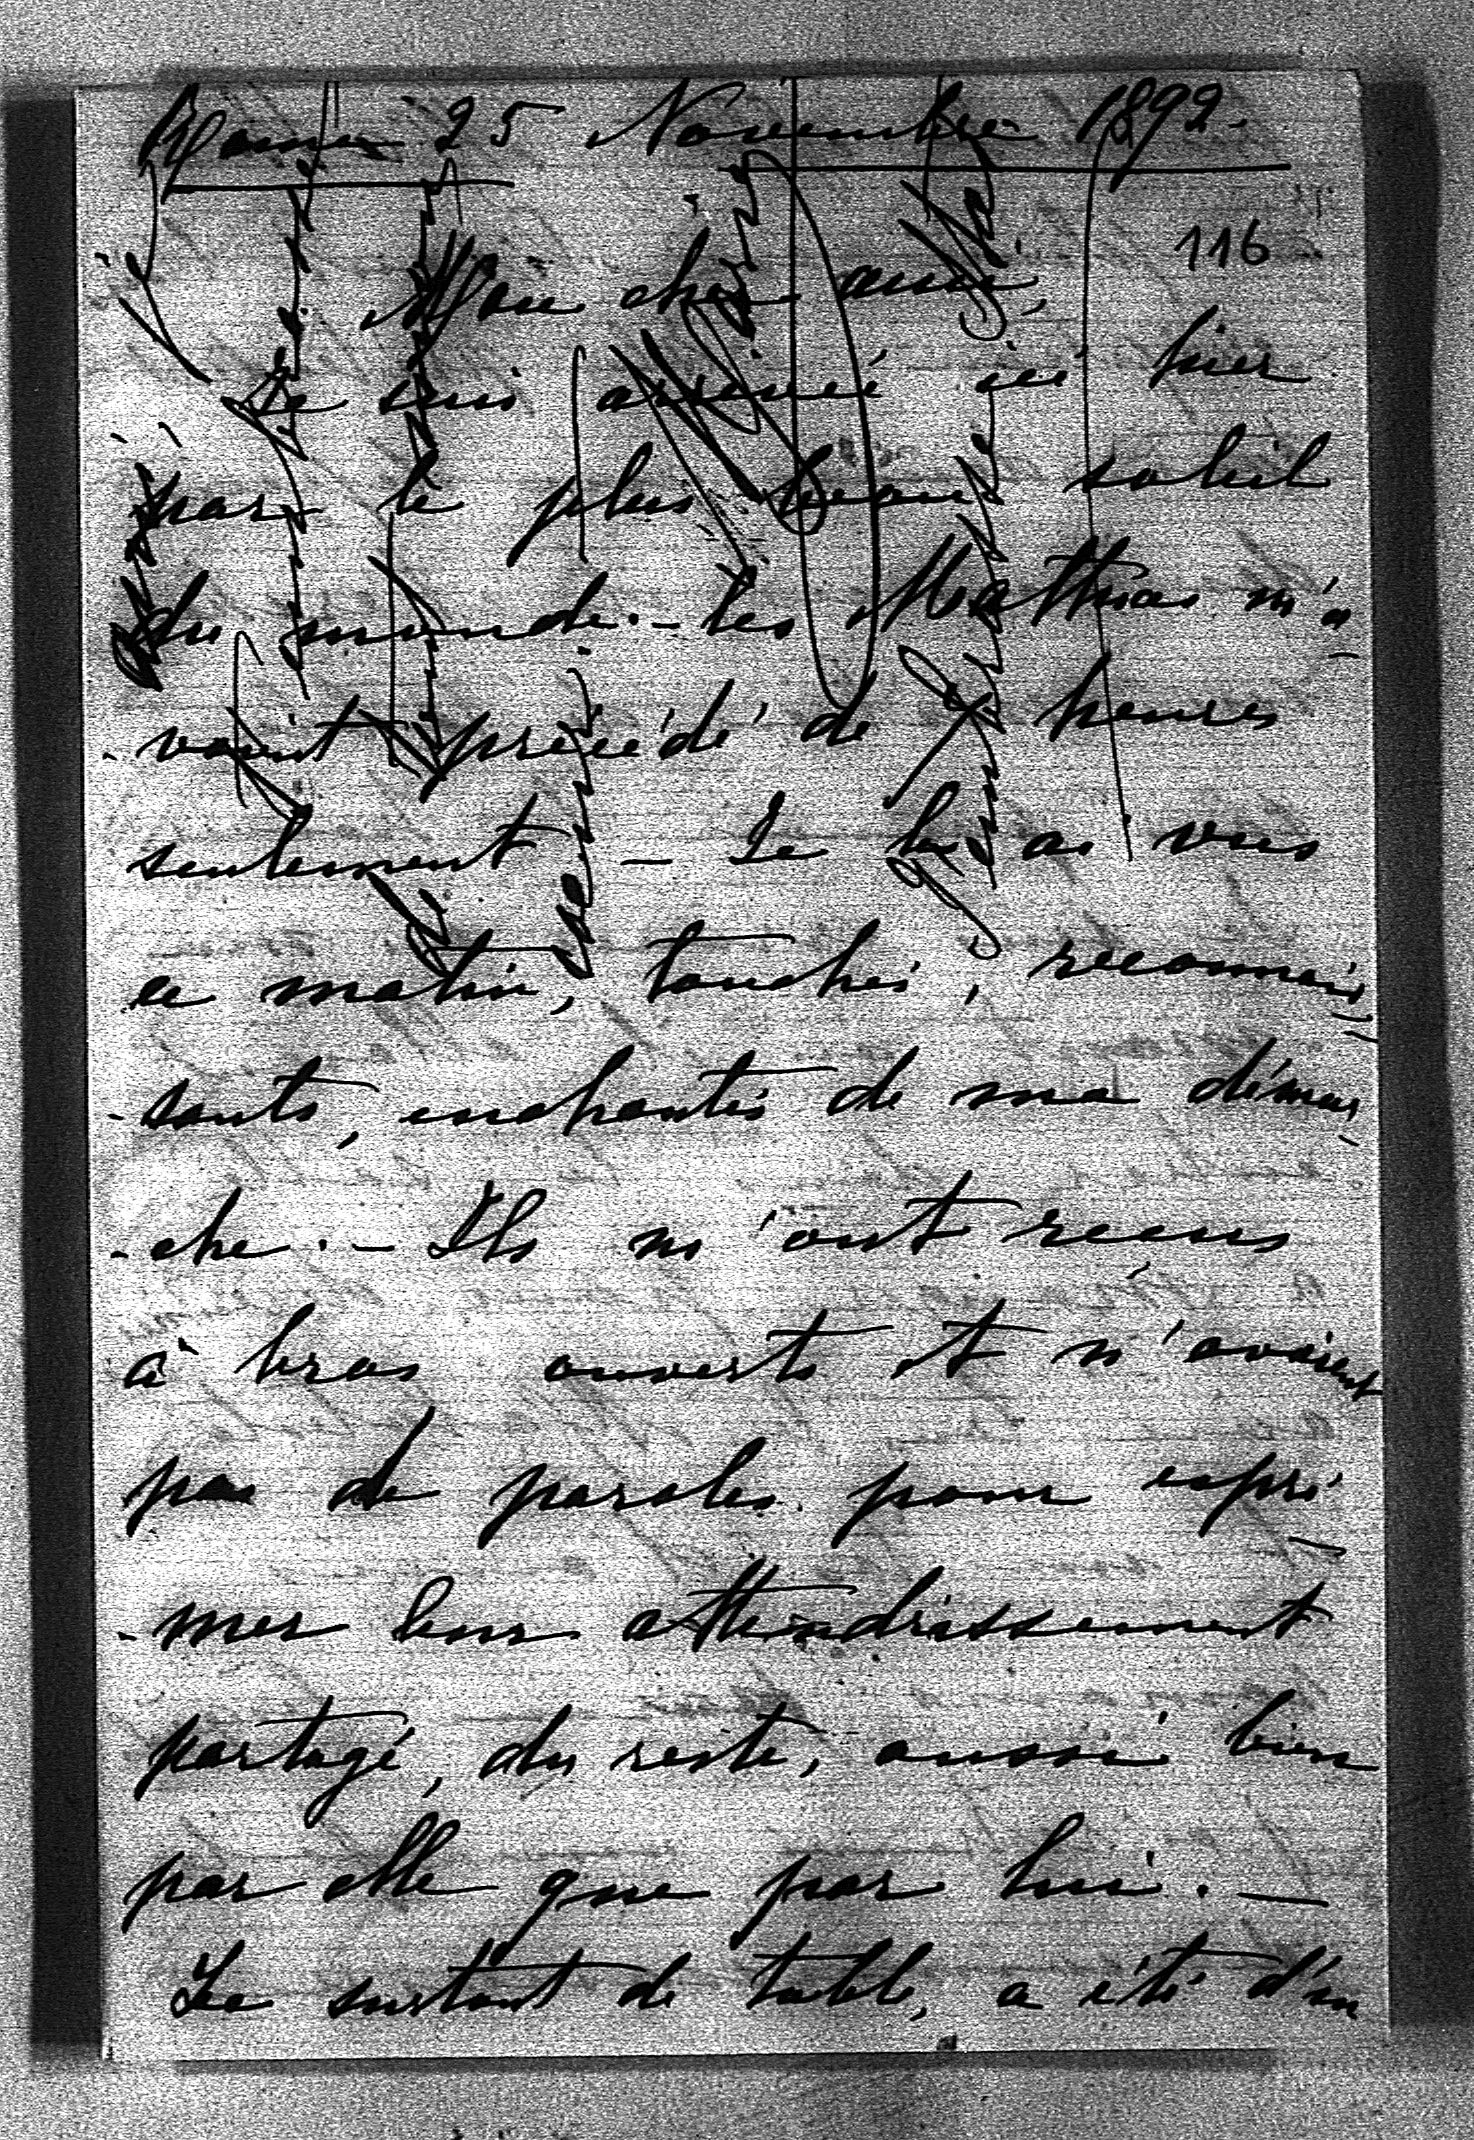 Rome 25 Novembre 1892.
116
Mon cher ami,
Je suis arrivé ici hier
par le plus beau soleil
du monde. - les Mathias m'a
- vaint précédé de heures
seulement - Je les ai vus
ce matin, touchés, reconnais
- sants, enchantés de ma démar
- che. - Ils m'ont reçus
à bras ouverts et n'avaient
pas de paroles pour expri
- mer leur attendrissement
partagé, du reste, aussi bien
par elle que par lui. -
Le surtout de table, a été d'un